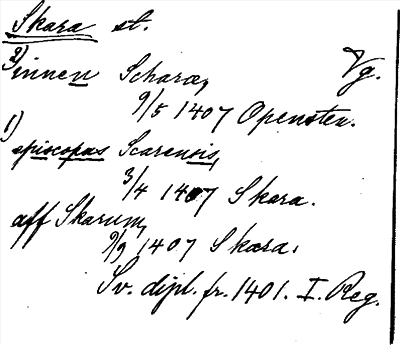 Skara st.
2) innen Scharæ, Vg.
9/5 1407 Opensten.
1)
episcopus Scarensis,
3/4 1407 Skara.
aff Skarum,
9/9 1407 Skara.
Sv. dipl. fr. 1401. I. Reg.